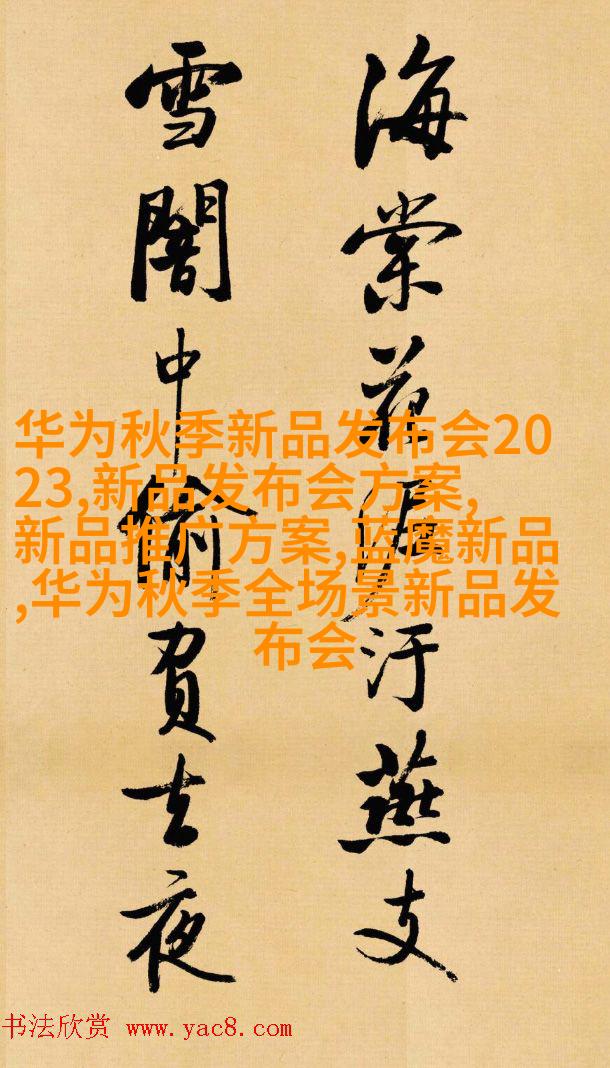 海棠花泥汙燕支
雪闇中偷負去夜
华为秋季新品发布会20
23,新品发布会方案,
新品推广方案,蓝魔新品
,华为秋季全场景新品发
布会
书法欣赏 www.yac8.com